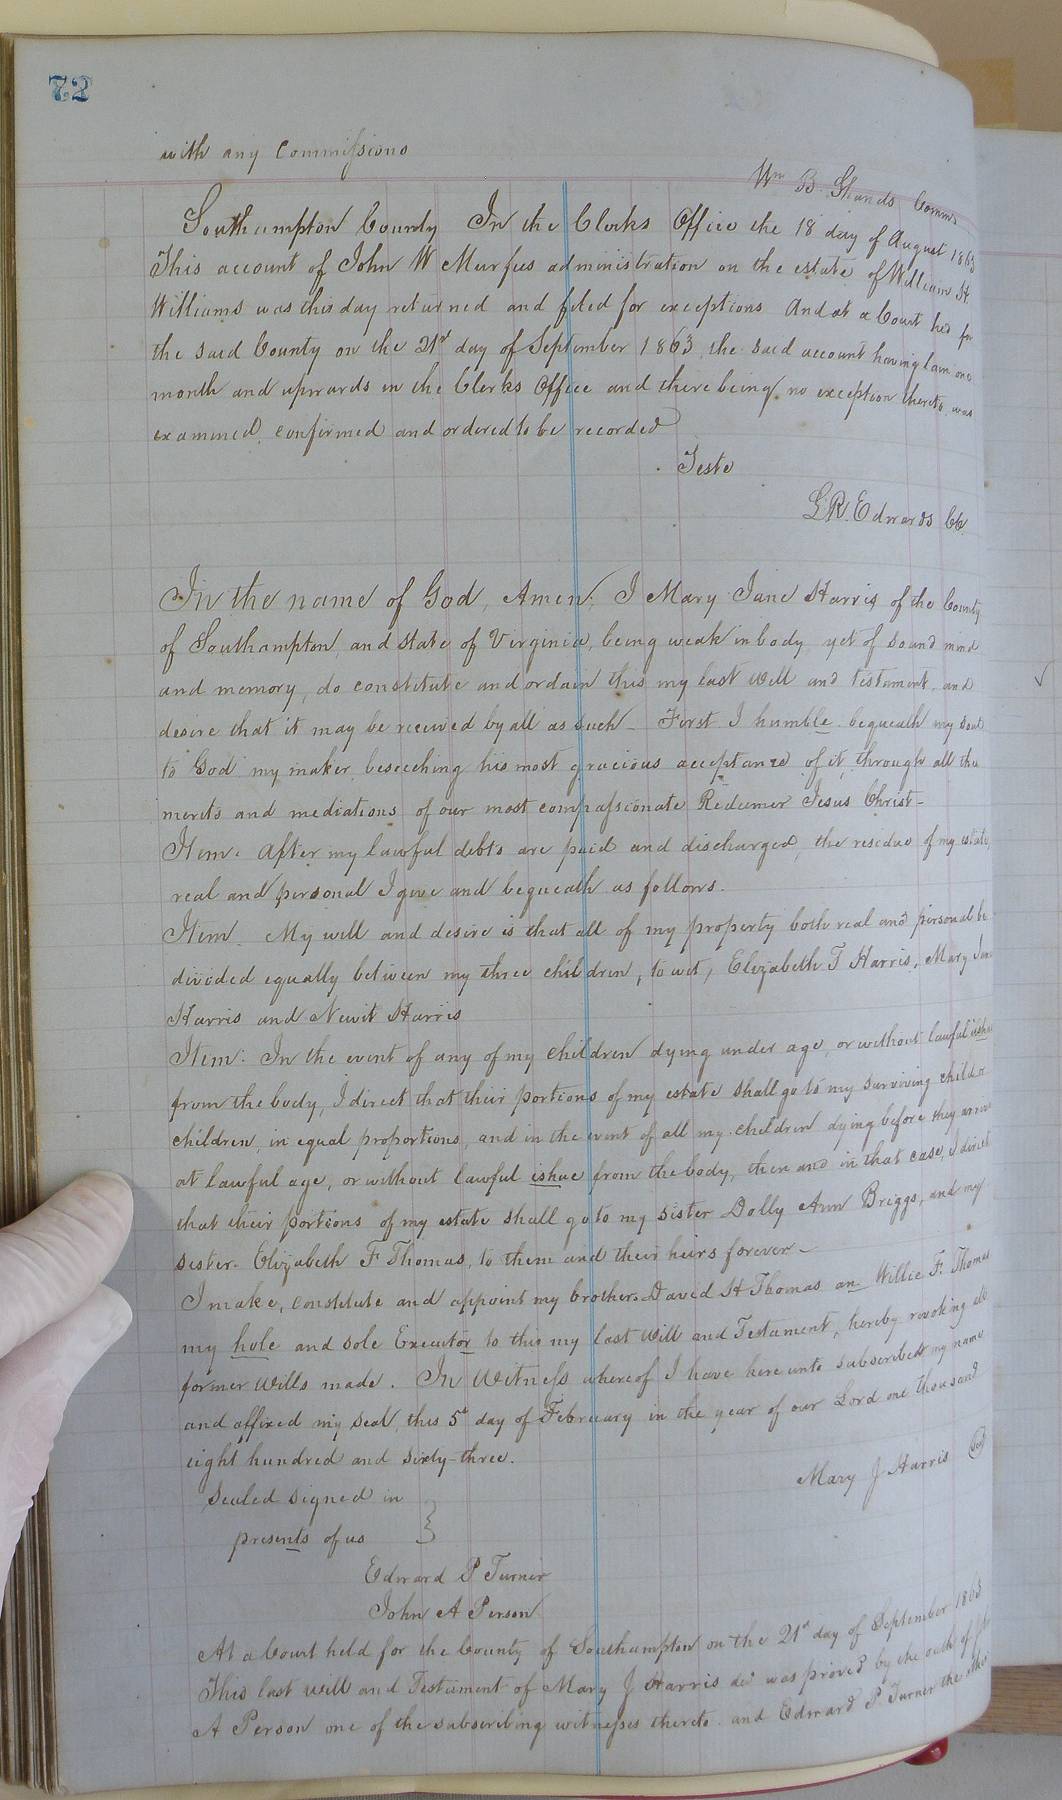 72
with any Commissions
Wm B. Shands Comm
Southampton County In the Clerks Office the 18 day of August 1863
This account of John W Murfees administration on the estate of William H.
Williams was this day returned and filed for exceptions And at a Court held for
the said County on the 21st day of September 1863, the said account having lain one
month and upwards in the Clerks Office and there being no exception thereto, was
examined, confirmed and ordered to be recorded
Teste
L R. Edwards CC
In the name of God, Amen, I Mary Jane Harris of the County
of Southampton, and state of Virginia, being weak in body, yet of sound mind
and memory, do constitute and ordain this my last Will and testament, and
desire that it may be received by all as such - First I humble bequeath my soul
to God my maker, beseeching his most gracious acceptance of it, through all the
merits and mediations of our most compassionate Redeemer Jesus Christ -
Item. After my lawful debts are paid and discharged, the residue of my estate,
real and personal I give and bequeath as follows.
Item. My will and desire is that all of my property both real and personal be
divided equally between my three children, to wit, Elizabeth T Harris, Mary Jane
Harris and Newit Harris
Item. In the event of any of my children dying under age, or without lawful ishue
from the body, I direct that their portions of my estate shall go to my surviving child or
children, in equal proportions, and in the event of all my children dying before they arrive
at lawful age, or without lawful ishue from the body, then and in that case, I direct
that their portions of my estate shall go to my sister Dolly Ann Briggs, and my
sister. Elizabeth F Thomas, to them and their heirs forever -
I make, constitute and appoint my brothers David H Thomas an Willie F. Thomas
my hole and sole Executor to this my last Will and Testament, hereby revoking all
former Wills made. In Witness whereof I have here unto subscribed my name
and affixed my seal, this 5th day of February in the year of our Lord one thousand
eight hundred and sixty-three.
Mary J. Harris Seal
Sealed signed in
presents of us
Edward P Turner
John A Person
At a Court held for the County of Southampton on the 21st day of September 1863
This last will and Testament of Mary J Harris decd was proved by the oath of Jno
A Person one of the subscribing witnesses thereto. and Edward P. Turner the other